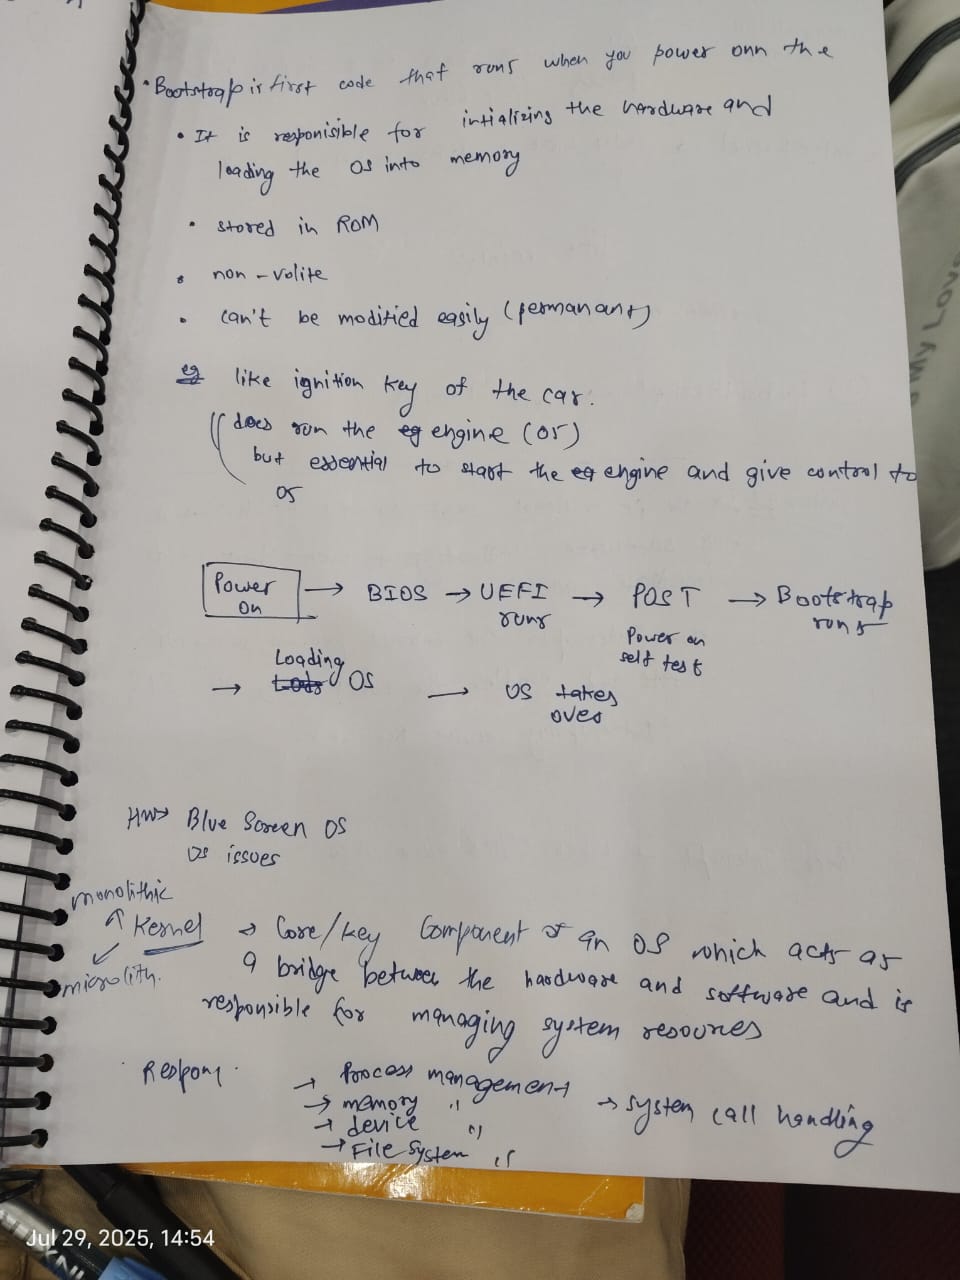 • Bootstrap is first code that runs when you power onn the
• It is responisible for intializing the hardware and
loading the OS into memory
• stored in ROM
• non - volite
• can't be modified easily (permanant)
eg like ignition key of the car.
does run the engine (OS)
but essential to start the engine and give control to
OS
Power on → BIOS → UEFI runs → POST → Bootstrap runs
Power on
self test
→ Loading OS → OS takes over
HW→ Blue Screen OS
OS issues
monolithic
↑ Kernel → Core/key Component of an OS which acts as
↙ a bridge between the hardware and software and is
microlith.
responsible for managing system resources
Respon.
→ Process management
→ memory "
→ device "
→ File System "
→ System call handling
My Love
Jul 29, 2025, 14:54